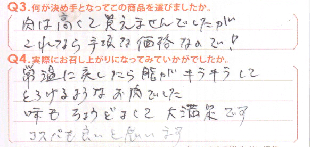 Q3.何が決め手となってこの商品を選びましたか。
肉は高くて買えませんでしたが
これなら手頃な価格なので!
Q4.実際にお召し上がりになってみていかがでしたか。
常温に戻したら脂がキラキラして
とろけるようなお肉でした
味もちょうどよくて大満足です
コスパも良いと思います